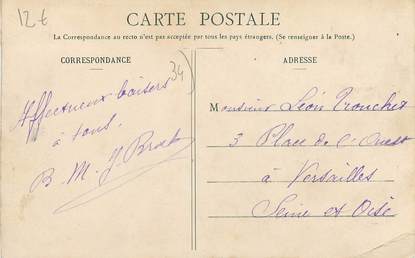 12 €
CARTE POSTALE
La Correspondance au recto n'est pas acceptée par tous les pays étrangers. (Se renseigner à la Poste.)
CORRESPONDANCE
34)
Affectueux baisers
à tous.
B. M. J.
ADRESSE
Monsieur Léon Tronchet
3 Place de l'Ouest
à Versailles
Seine et Oise